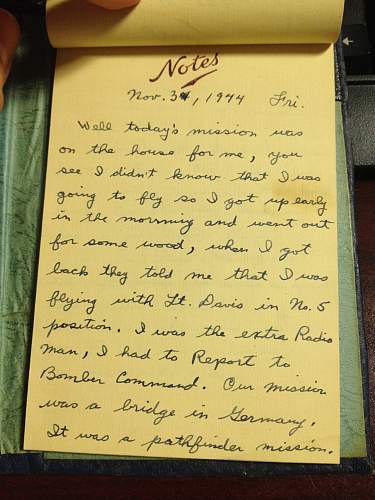 Notes
Nov. 34, 1944 Fri.
Well today's mission was
on the house for me, you
see I didn't know that I was
going to fly so I got up early
in the morning and went out
for some wood, when I got
back they told me that I was
flying with Lt. Davis in No. 5
position. I was the extra Radio
man, I had to Report to
Bomber Command. Our mission
was a bridge in Germany.
It was a pathfinder mission.